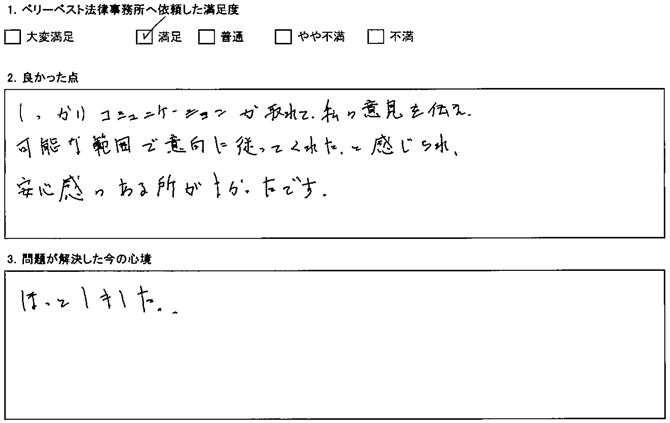 1. ベリーベスト法律事務所へ依頼した満足度
□ 大変満足 ☑ 満足 □ 普通 □ やや不満 □ 不満
2. 良かった点
しっかりコミュニケーションが取れて、私の意見を伝え、
可能な範囲で意向に従ってくれた、と感じられ、
安心感のある所がよかったです。
3. 問題が解決した今の心境
ほっとしました。